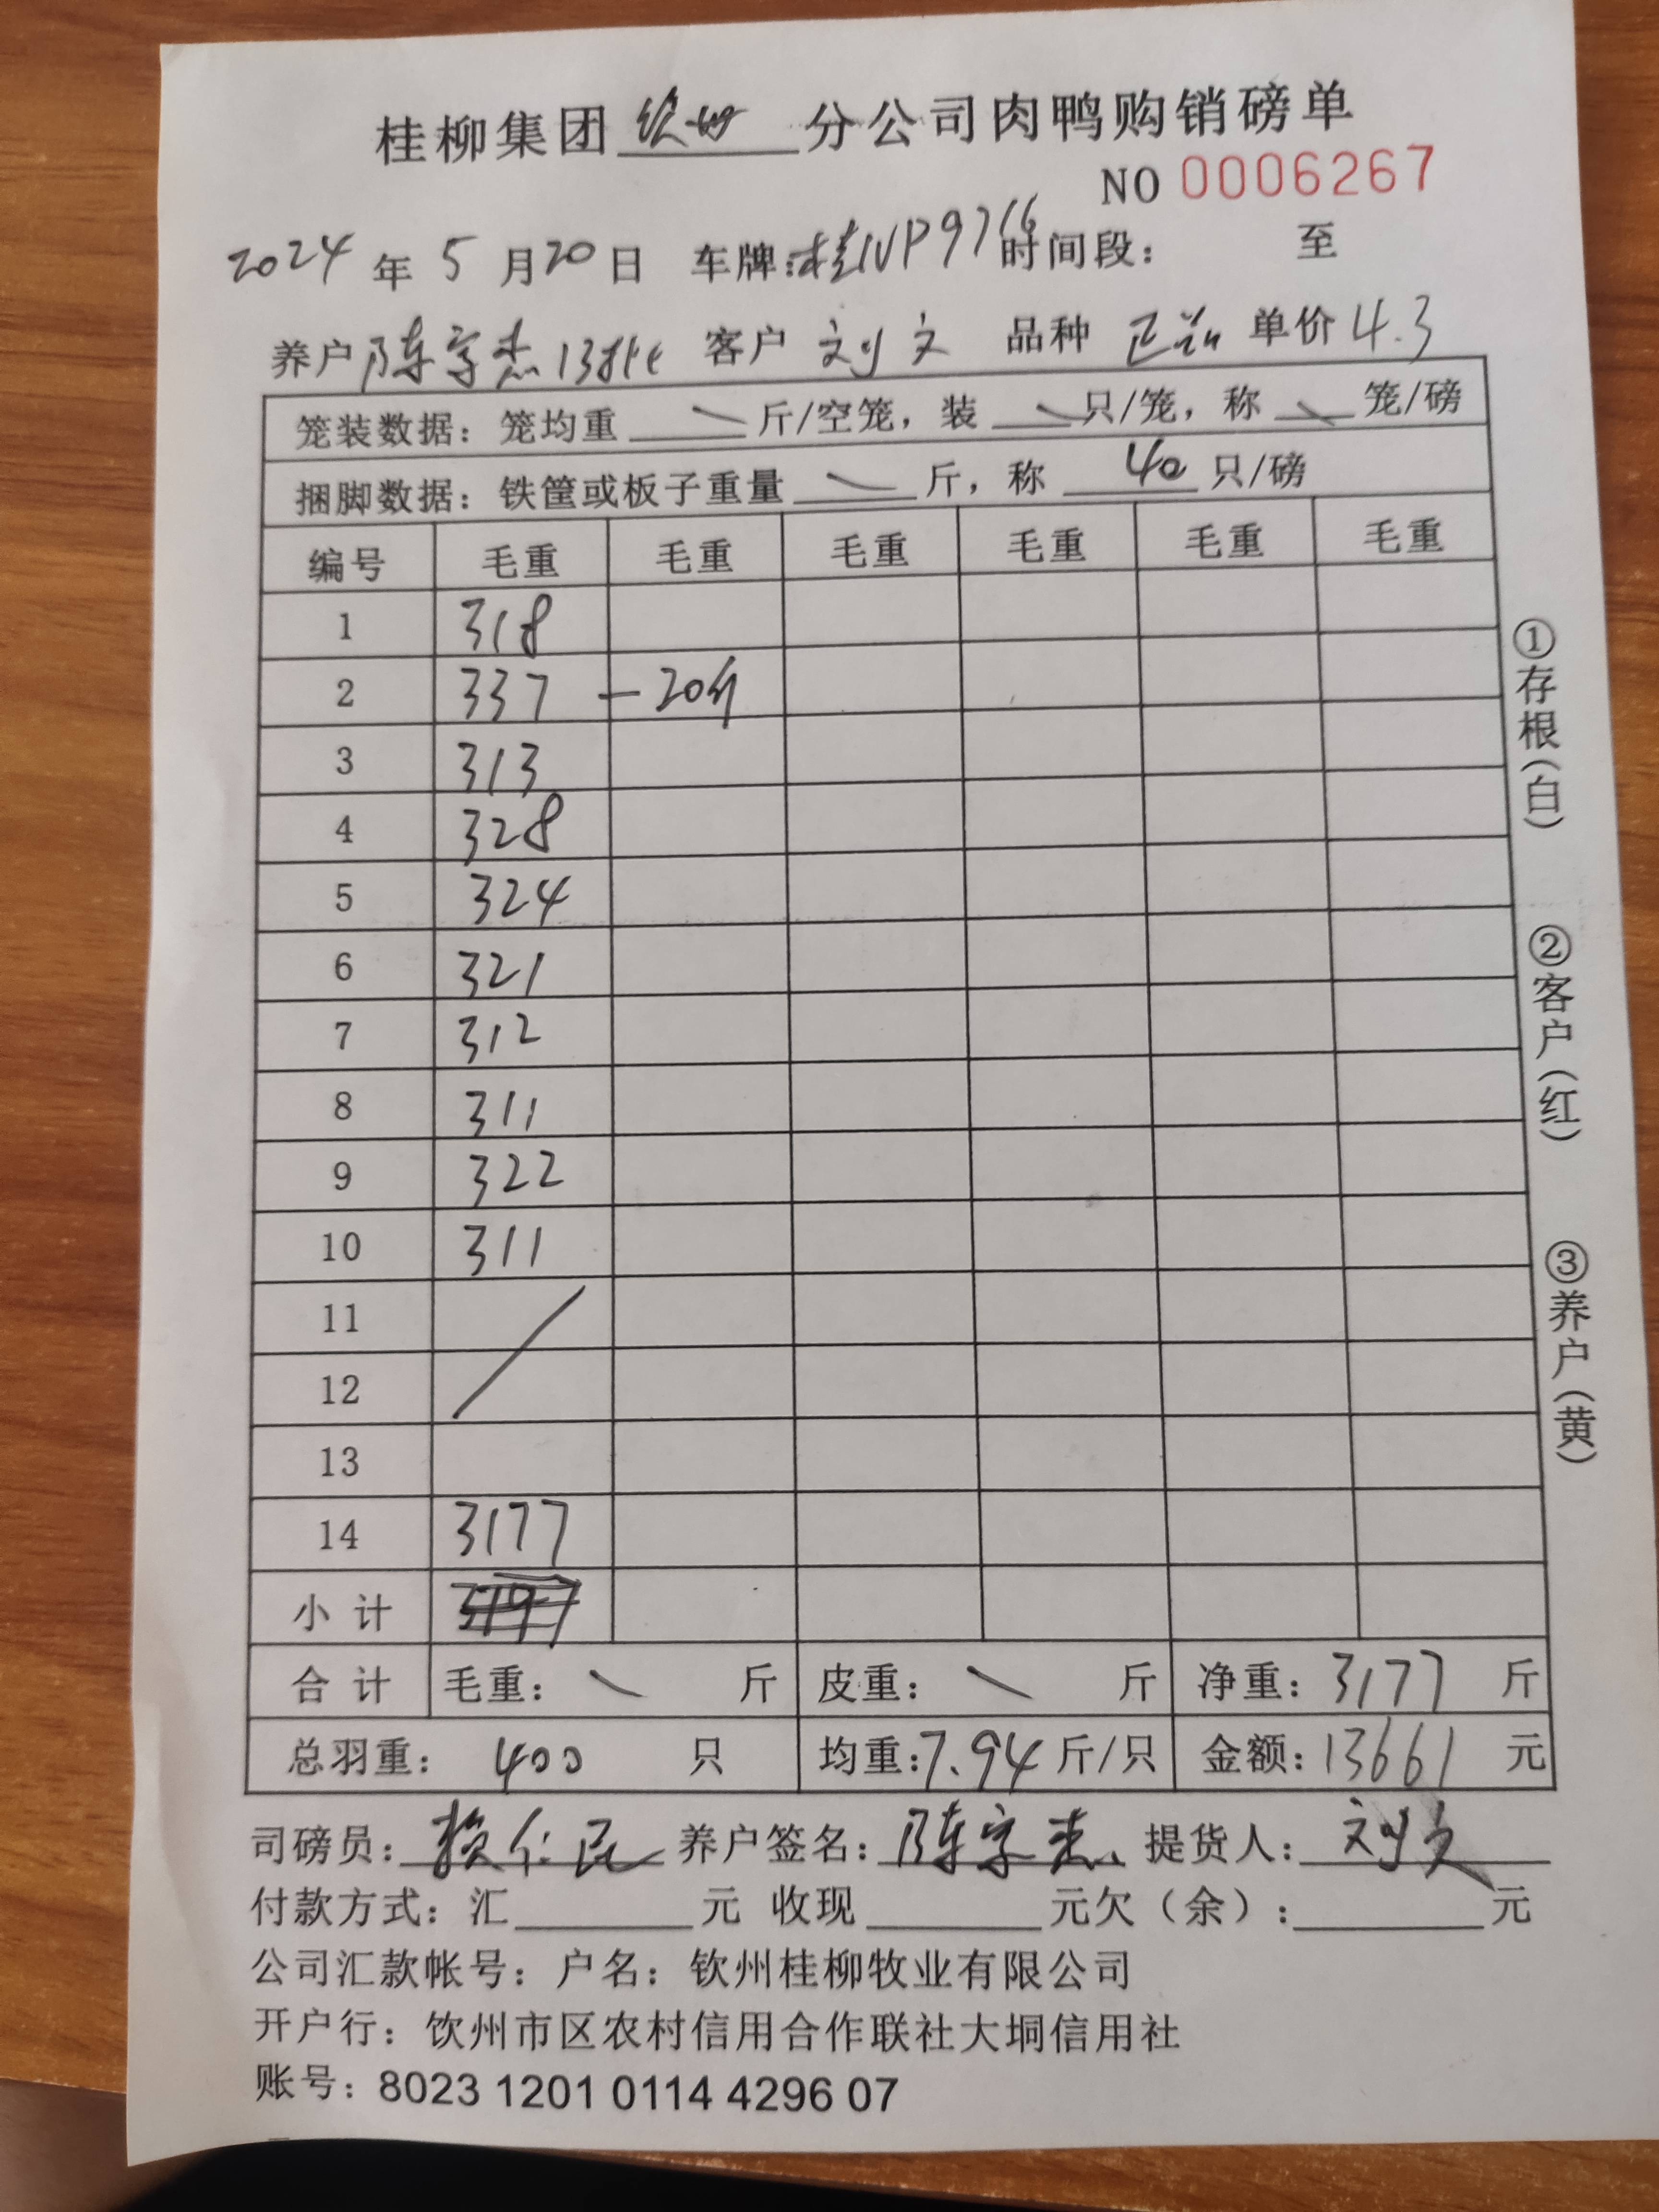 桂柳集团 钦州 分公司肉鸭购销磅单
NO 0006267
2024 年 5 月 20 日 车牌:桂NP9766 时间段： 至
养户 陈字杰13批 客户 刘文 品种 单价 4.3
笼装数据：笼均重 \ 斤/空笼，装 \ 只/笼，称 \ 笼/磅
捆脚数据：铁筐或板子重量 \ 斤，称 40 只/磅
编号 毛重 毛重 毛重 毛重 毛重 毛重
1 318
2 337 —20斤
3 313
4 328
5 324
6 321
7 312
8 311
9 322
10 311
11
12
13
14 3177
小 计
合 计 毛重： \ 斤 皮重： \ 斤 净重：3177 斤
总羽重： 400 只 均重:7.94 斤/只 金额:13661 元
司磅员: 赖仁民 养户签名: 陈字杰 提货人: 刘文
付款方式：汇 元 收现 元欠（余）: 元
公司汇款帐号：户名：钦州桂柳牧业有限公司
开户行：饮州市区农村信用合作联社大垌信用社
账号：8023 1201 0114 4296 07
①存根（白）
②客户（红）
③养户（黄）